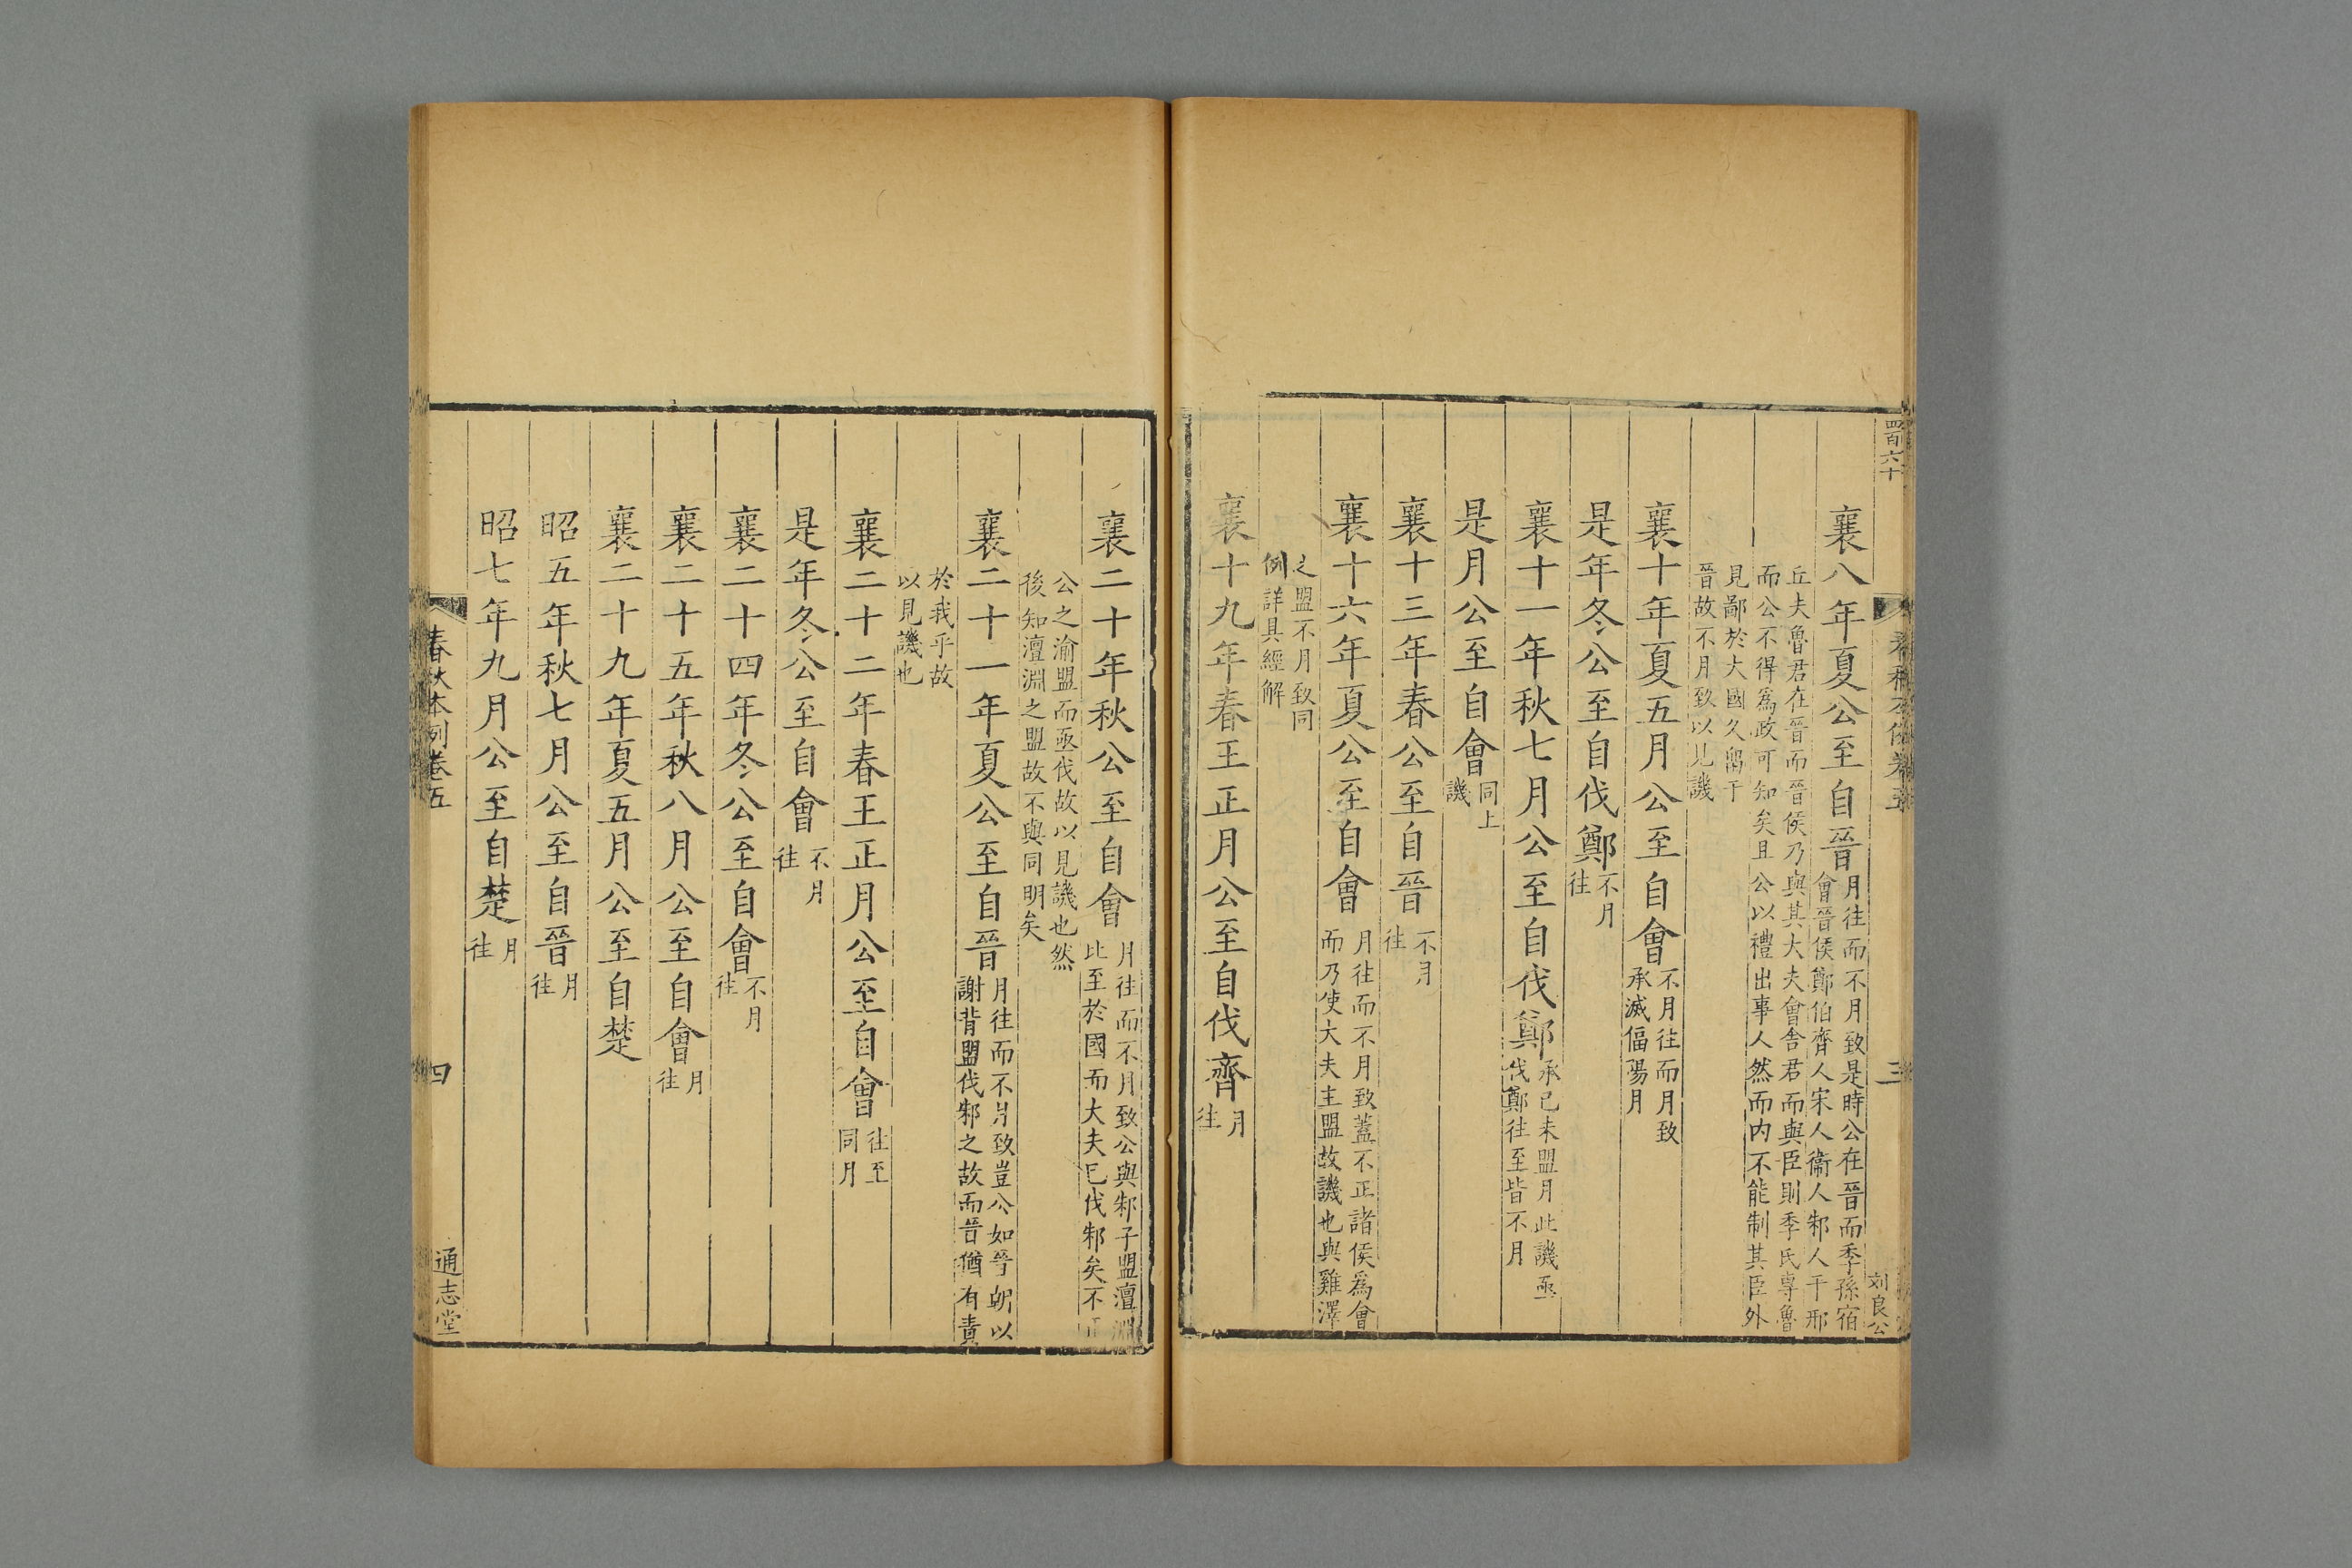 四百六十
春秋本例卷五
三
刘良公
襄八年夏公至自晉月往而不月致是時公在晉而季孫宿
會晉侯鄭伯齊人宋人衞人邾人于邢
丘夫魯君在晉而晉侯乃與其大夫會舍君而與臣則季氏専魯
而公不得爲政可知矣且公以禮出事人然而内不能制其臣外
見鄙於大國久留于
晉故不月致以見譏
襄十年夏五月公至自會不月往而月致
承滅偪陽月
是年冬公至自伐鄭不月
往
襄十一年秋七月公至自伐鄭承已未盟月此譏亟
伐鄭往至皆不月
是月公至自會同上
譏
襄十三年春公至自晉不月
往
襄十六年夏公至自會月往而不月致蓋不正諸侯爲會
而乃使大夫主盟故譏也與雞澤
之盟不月致同
例詳具經解
襄十九年春王正月公至自伐齊月
往
襄二十年秋公至自會月往而不月致公與邾子盟澶淵
比至於國而大夫已伐邾矣不正
公之渝盟而亟伐故以見譏也然
後知澶淵之盟故不與同明矣
襄二十一年夏公至自晉月往而不月致豈公如晉朝以
謝背盟伐邾之故而晉猶有責
於我乎故
以見譏也
襄二十二年春王正月公至自會往至
同月
是年冬公至自會不月
往
襄二十四年冬公至自會不月
往
襄二十五年秋八月公至自會月
往
襄二十九年夏五月公至自楚
昭五年秋七月公至自晉月
往
昭七年九月公至自楚月
往
春秋本例卷五
四
通志堂